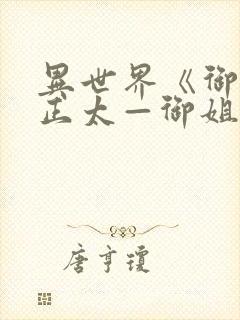 異世界《御
正太—御姐
唐亨瓊